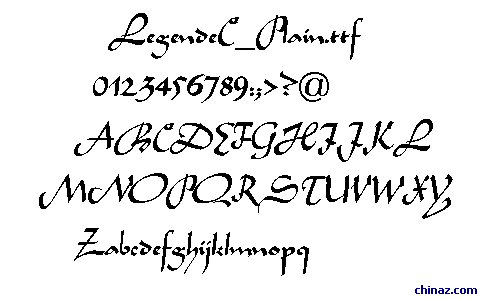 LegendeC_Plain.ttf
0123456789:;>?@
ABCDEFGHIJKL
MNOPQRSTUVWXY
Zabcdefghijklmnopq
chinaz.com